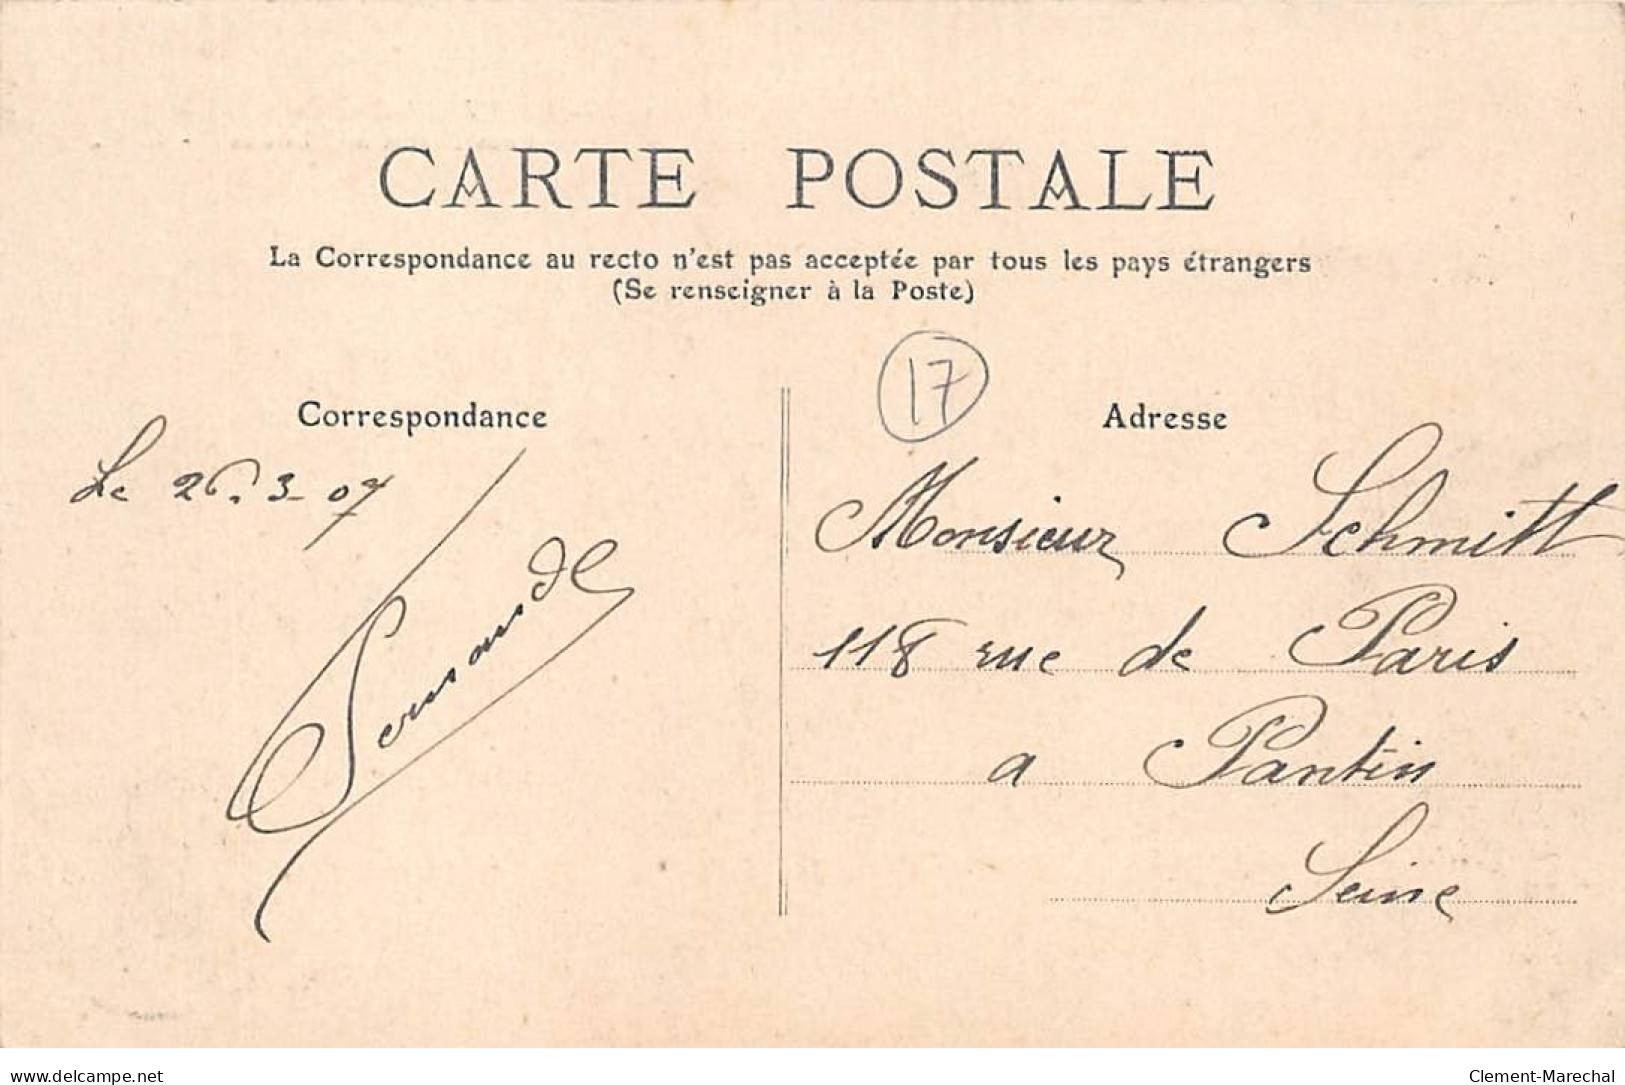 CARTE POSTALE
La Correspondance au recto n'est pas acceptée par tous les pays étrangers
(Se renseigner à la Poste)
17
Correspondance
Adresse
Le 26.3-07
Monsieur Schmitt
118 rue de Paris
a Pantin
Seine
www.delcampe.net
Clement-Marechal